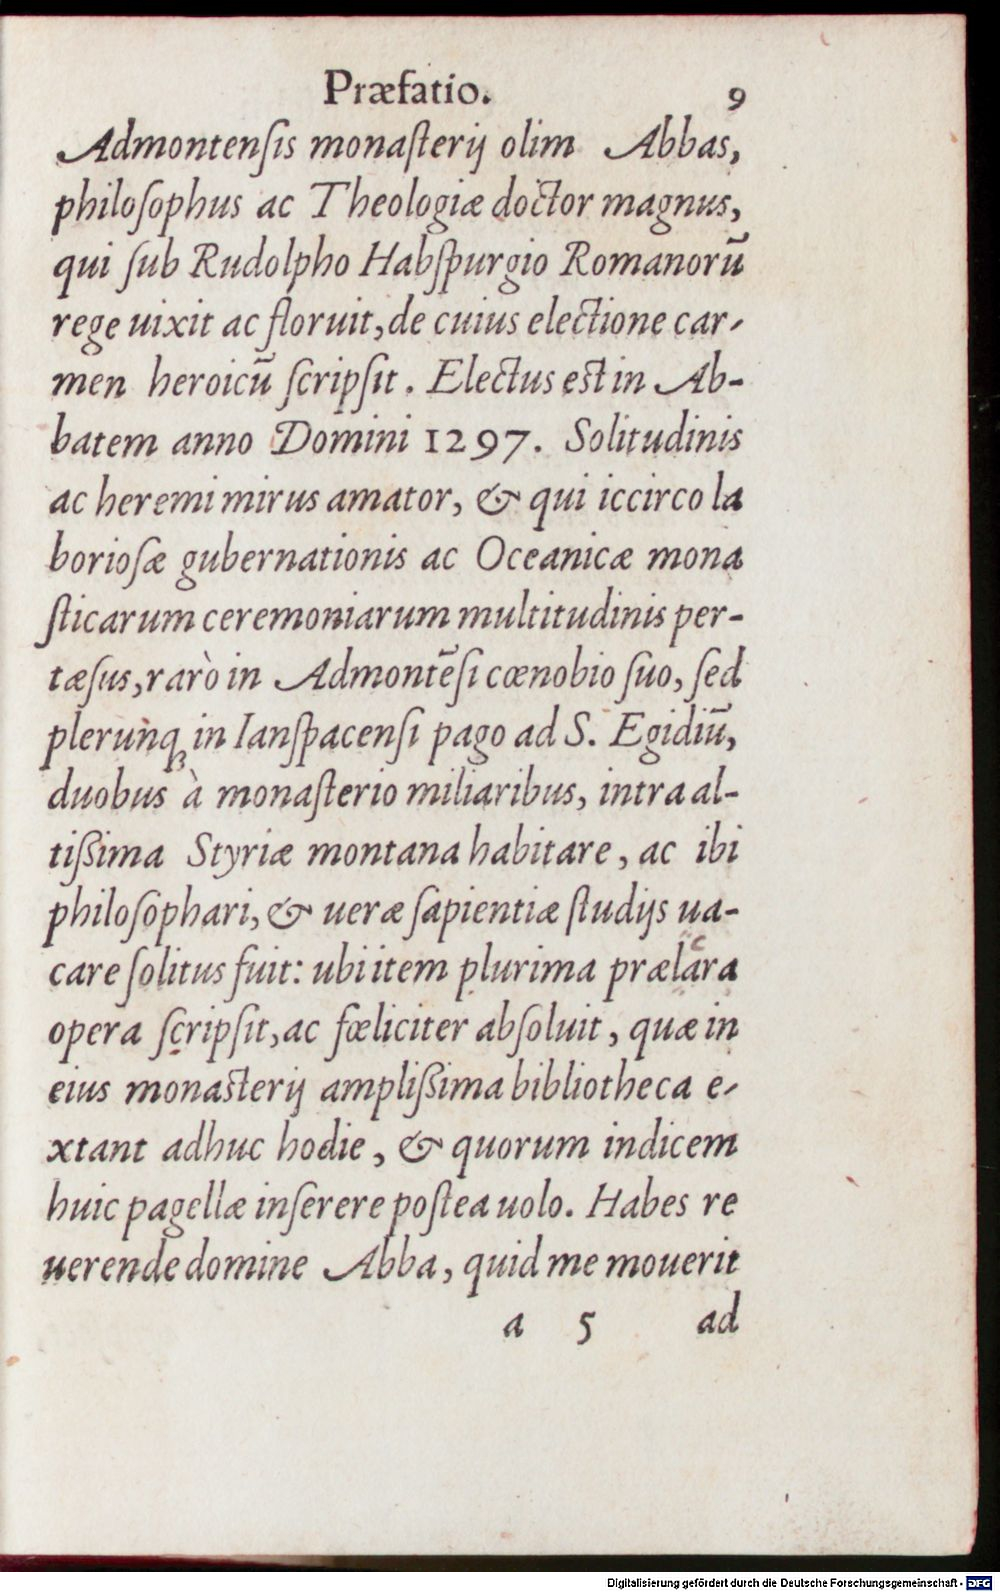 Præfatio. 9
Admontenſis monaſterij olim Abbas,
philoſophus ac Theologiæ doctor magnus,
qui ſub Rudolpho Habſpurgio Romanorū
rege uixit ac floruit, de cuius electione car-
men heroicū ſcripſit. Electus est in Ab-
batem anno Domini 1297. Solitudinis
ac heremi mirus amator, & qui iccirco la
borioſæ gubernationis ac Oceanicæ mona
ſticarum ceremoniarum multitudinis per-
tæſus, rarò in Admontēſi cœnobio ſuo, ſed
plerunq̀ꝫ in Ianſpacenſi pago ad S. Egidiū,
duobus à monaſterio miliaribus, intra al-
tiſſima Styriæ montana habitare, ac ibi
philoſophari, & ueræ ſapientiæ ſtudijs ua-
care ſolitus fuit: ubi item plurima prælcara
opera ſcripſit, ac fœliciter abſoluit, quæ in
eius monasterij ampliſſima bibliotheca e-
xtant adhuc hodie, & quorum indicem
huic pagellæ inſerere poſtea uolo. Habes re
uerende domine Abba, quid me mouerit
a 5 ad
Digitalisierung gefördert durch die Deutsche Forschungsgemeinschaft - DFG